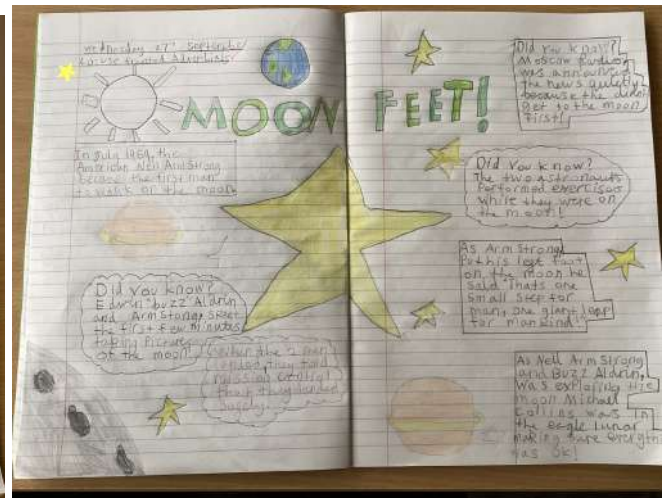 Wednesday 27th September
MOON FEET!
In July 1969, the
American Neil Armstrong
became the first man
to walk on the moon.
Did you know?
Edwin "buzz" Aldrin
and Armstong spent
the first few minutes
taking Pictures
of the moon.
the 2 men
landed, they told
mission control
that they landed
safely.
Did you know?
Moscow Radio
was announced
the news quietly
because the didn't
get to the moon
first!
Did You know?
The two astronauts
Performed exercises
while they were on
the moon!
As Armstrong
Put his left foot
on the moon he
said "Thats one
small step for
man, one giant leap
for mankind."
As Neil Armstrong
and Buzz Aldrin,
was exploring the
moon Michael
Collins was in
the eagle lunar
making sure everything
was ok!